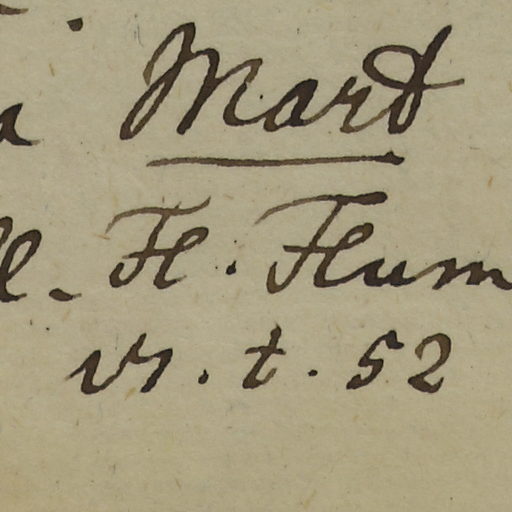 a Mart
Fl. Flum
vs. t. 52